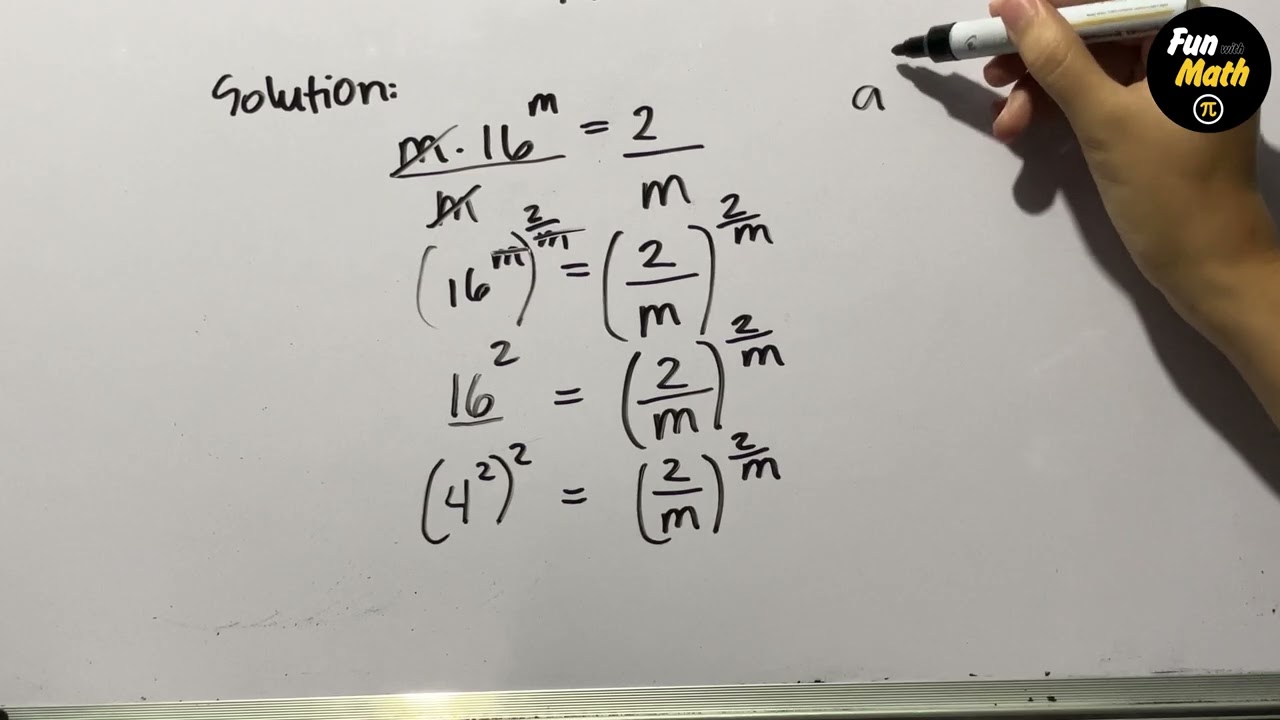 Solution:
m · 16^m / m = 2 / m
(16^m)^(2/m) = (2/m)^(2/m)
16^2 = (2/m)^(2/m)
(4^2)^2 = (2/m)^(2/m)
a
Fun with
Math
π